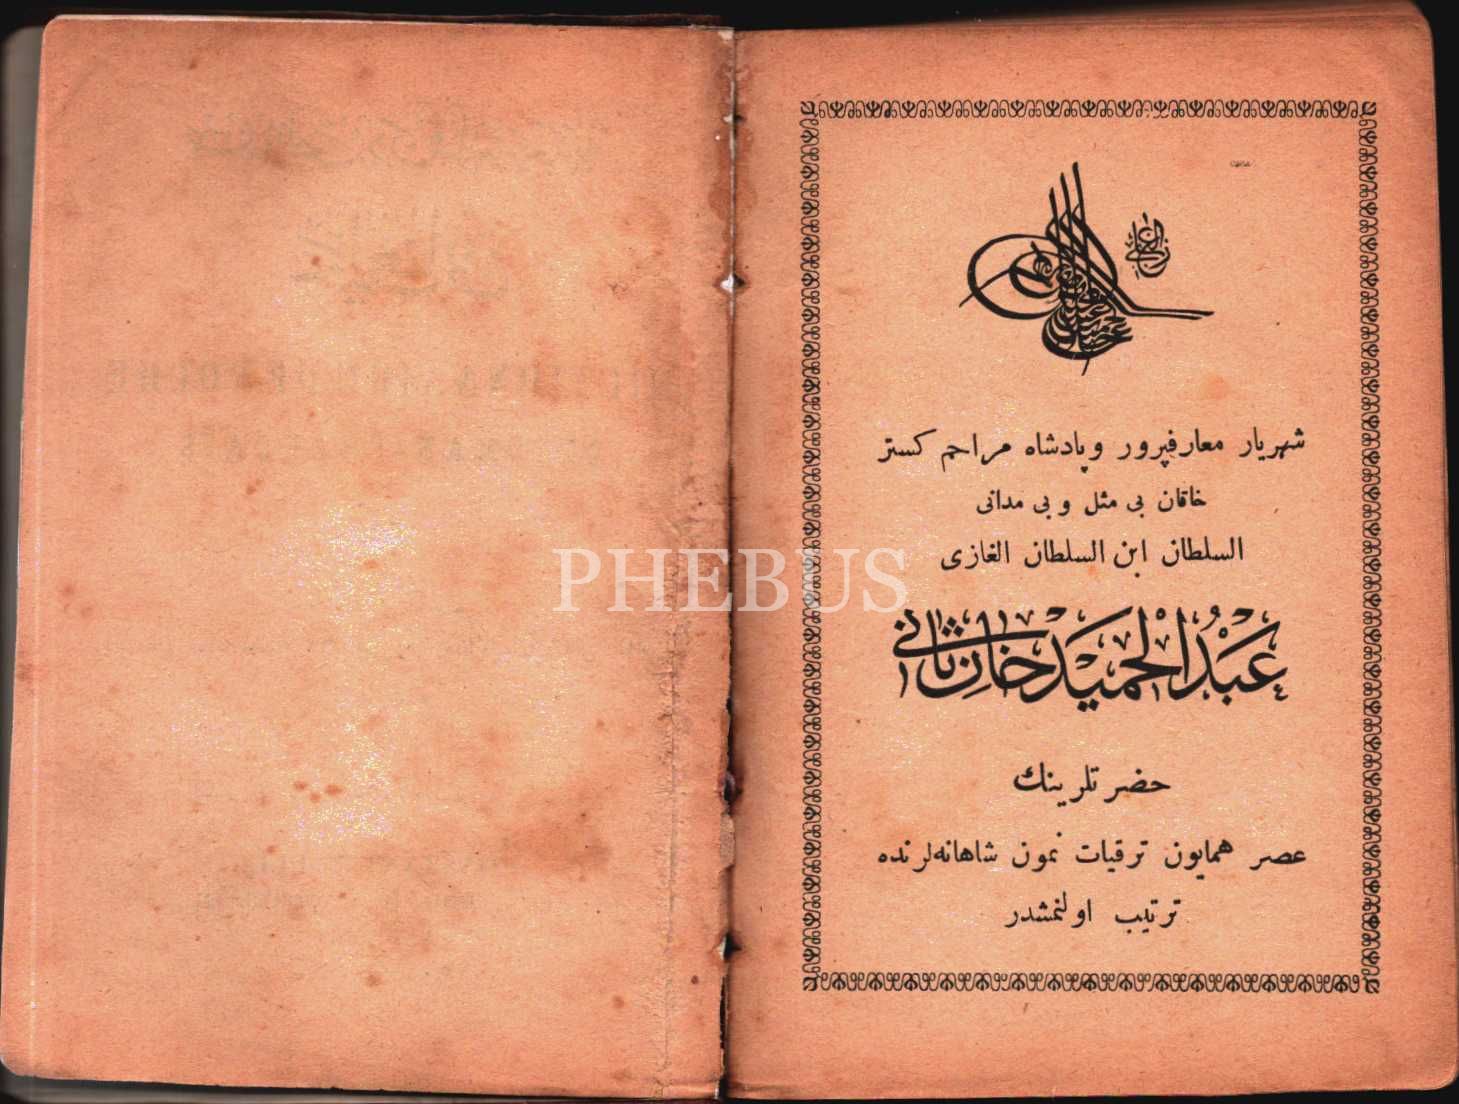 شهريار معارفپرور وپادشاه مراحم كستر
خاقان بی مثل و بی مدانی
السلطان ابن السلطان الغازی
عَبْدُ الْحَمِيدْ خَانِ ثَانِي
حضرتلرينك
عصر همايون ترقيات نمون شاهانه‌لرنده
ترتيب اولنمشدر
PHEBUS